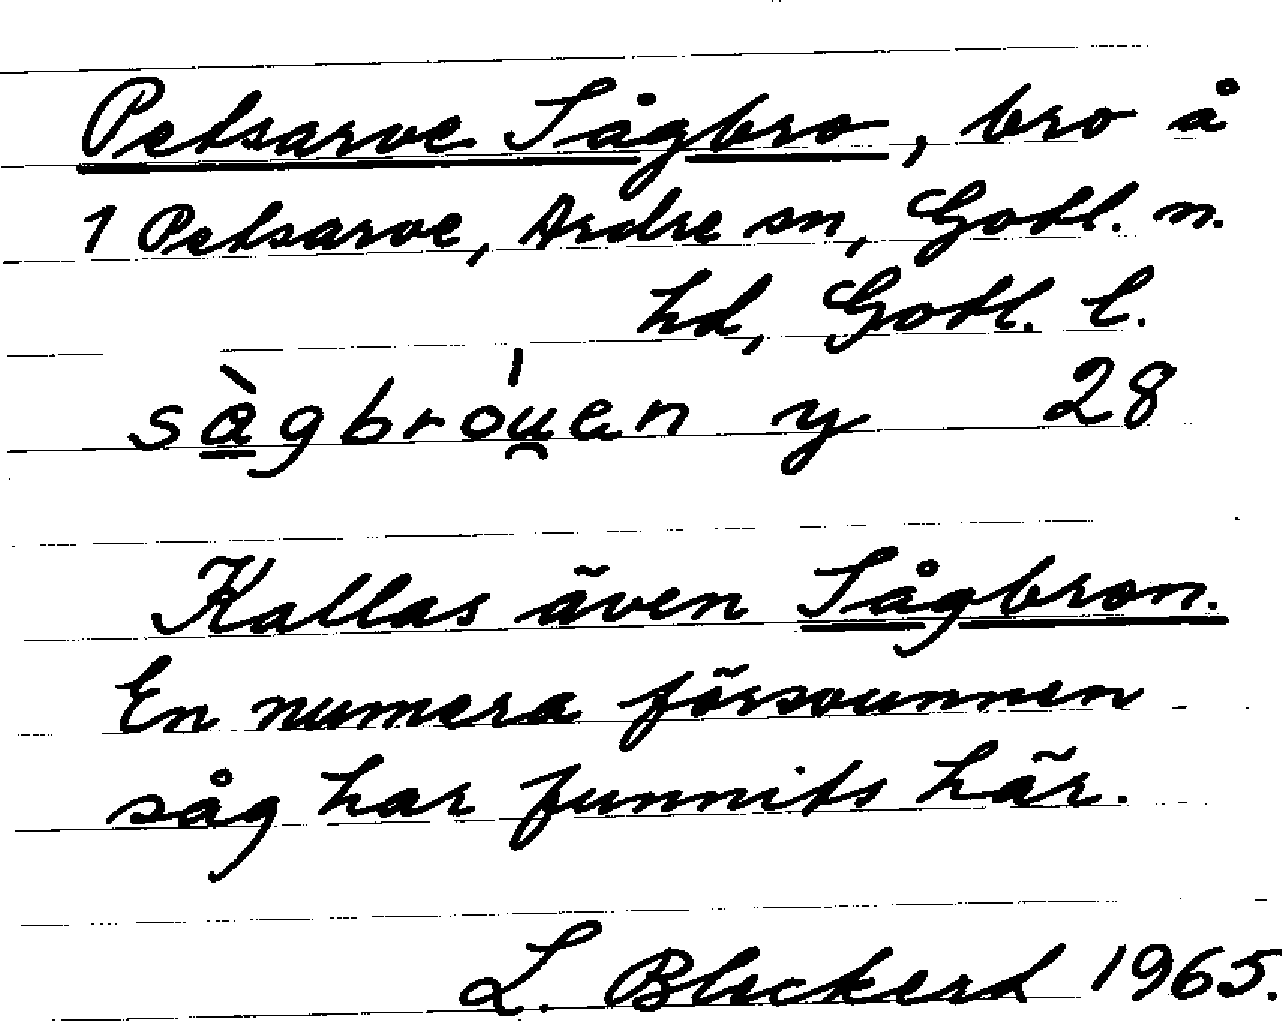 Petsarve Sågbro, bro å
1 Petsarve, Ardre sn, Gotl. n.
hd, Gotl. l.
sà̱gbróu̯en y 28
Kallas även Sågbron.
En numera försvunnen
såg har funnits här.
L. Bleckert 1965.